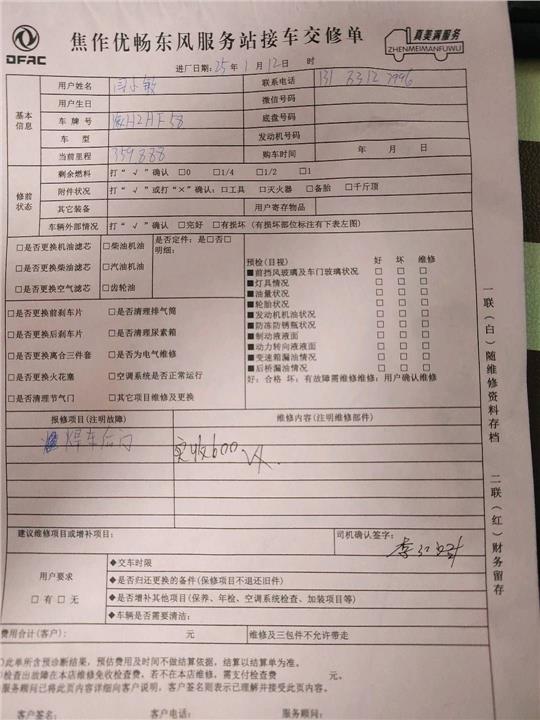 DFAC
焦作优畅东风服务站接车交修单
真美满服务
ZHENMEIMANFUWU
进厂日期：25年1月12日 时
基本信息
用户姓名 闫小敏 联系电话
用户生日 微信号码
车牌号 底盘号码
车型 发动机号码
当前里程 359888 购车时间 年 月 日
修前状态
剩余燃料 打“√”确认 □0 □1/4 □1/2 □1
附件状况 打“√”或打“×”确认：□工具 □灭火器 □备胎 □千斤顶
其它装备 用户寄存物品
车辆外部情况 打“√”确认 □完好 □有损坏（有损坏部位标注有下表左图）
□是否更换机油滤芯 □柴油机油 是否定件：是□否□
明细：
□是否更换柴油滤芯 □汽油机油
□是否更换空气滤芯 □齿轮油
预检(目视) 好 坏 维修
■前挡风玻璃及车门玻璃状况 □ □ □
■灯具情况 □ □ □
■油量状况 □ □ □
■轮胎状况 □ □ □
■发动机机油状况 □ □ □
■防冻防锈瓶状况 □ □ □
■制动液液面 □ □ □
■动力转向液液面 □ □ □
■变速箱漏油情况 □ □ □
■后桥漏油情况 □ □ □
好：合格 坏：有故障需维修维修：用户确认维修
□是否更换前刹车片 □是否清理排气筒
□是否更换后刹车片 □是否清理尿素箱
□是否更换离合三件套 □是否为电气维修
□是否更换火花塞 □空调系统是否正常运行
□是否清理节气门 □其它项目维修及更换
报修项目(注明故障) 维修内容(注明维修部件)
焊车后门 实收600
建议维修项目或增补项目： 司机确认签字：
用户要求
□有 □无
◆交车时限
◆是否归还更换的备件(保修项目不退还旧件)
◆是否增补其他项目(保养、年检、空调系统检查、加装项目等)
◆车辆是否需要清洁：
费用合计(客户)： 元 维修及三包件不允许带走
□此单所含预诊断结果，预估费用及时间不做结算依据，结算以结算单为准。
□检查出故障在本店维修免收检查费，若不在本店维修，需支付检查费 元。
□服务顾问已将此页内容详细向客户说明，客户签名则表示已理解并接受此页内容。
客户签名： 客户电话： 服务顾问：
一联（白）随维修资料存档
二联（红）财务留存